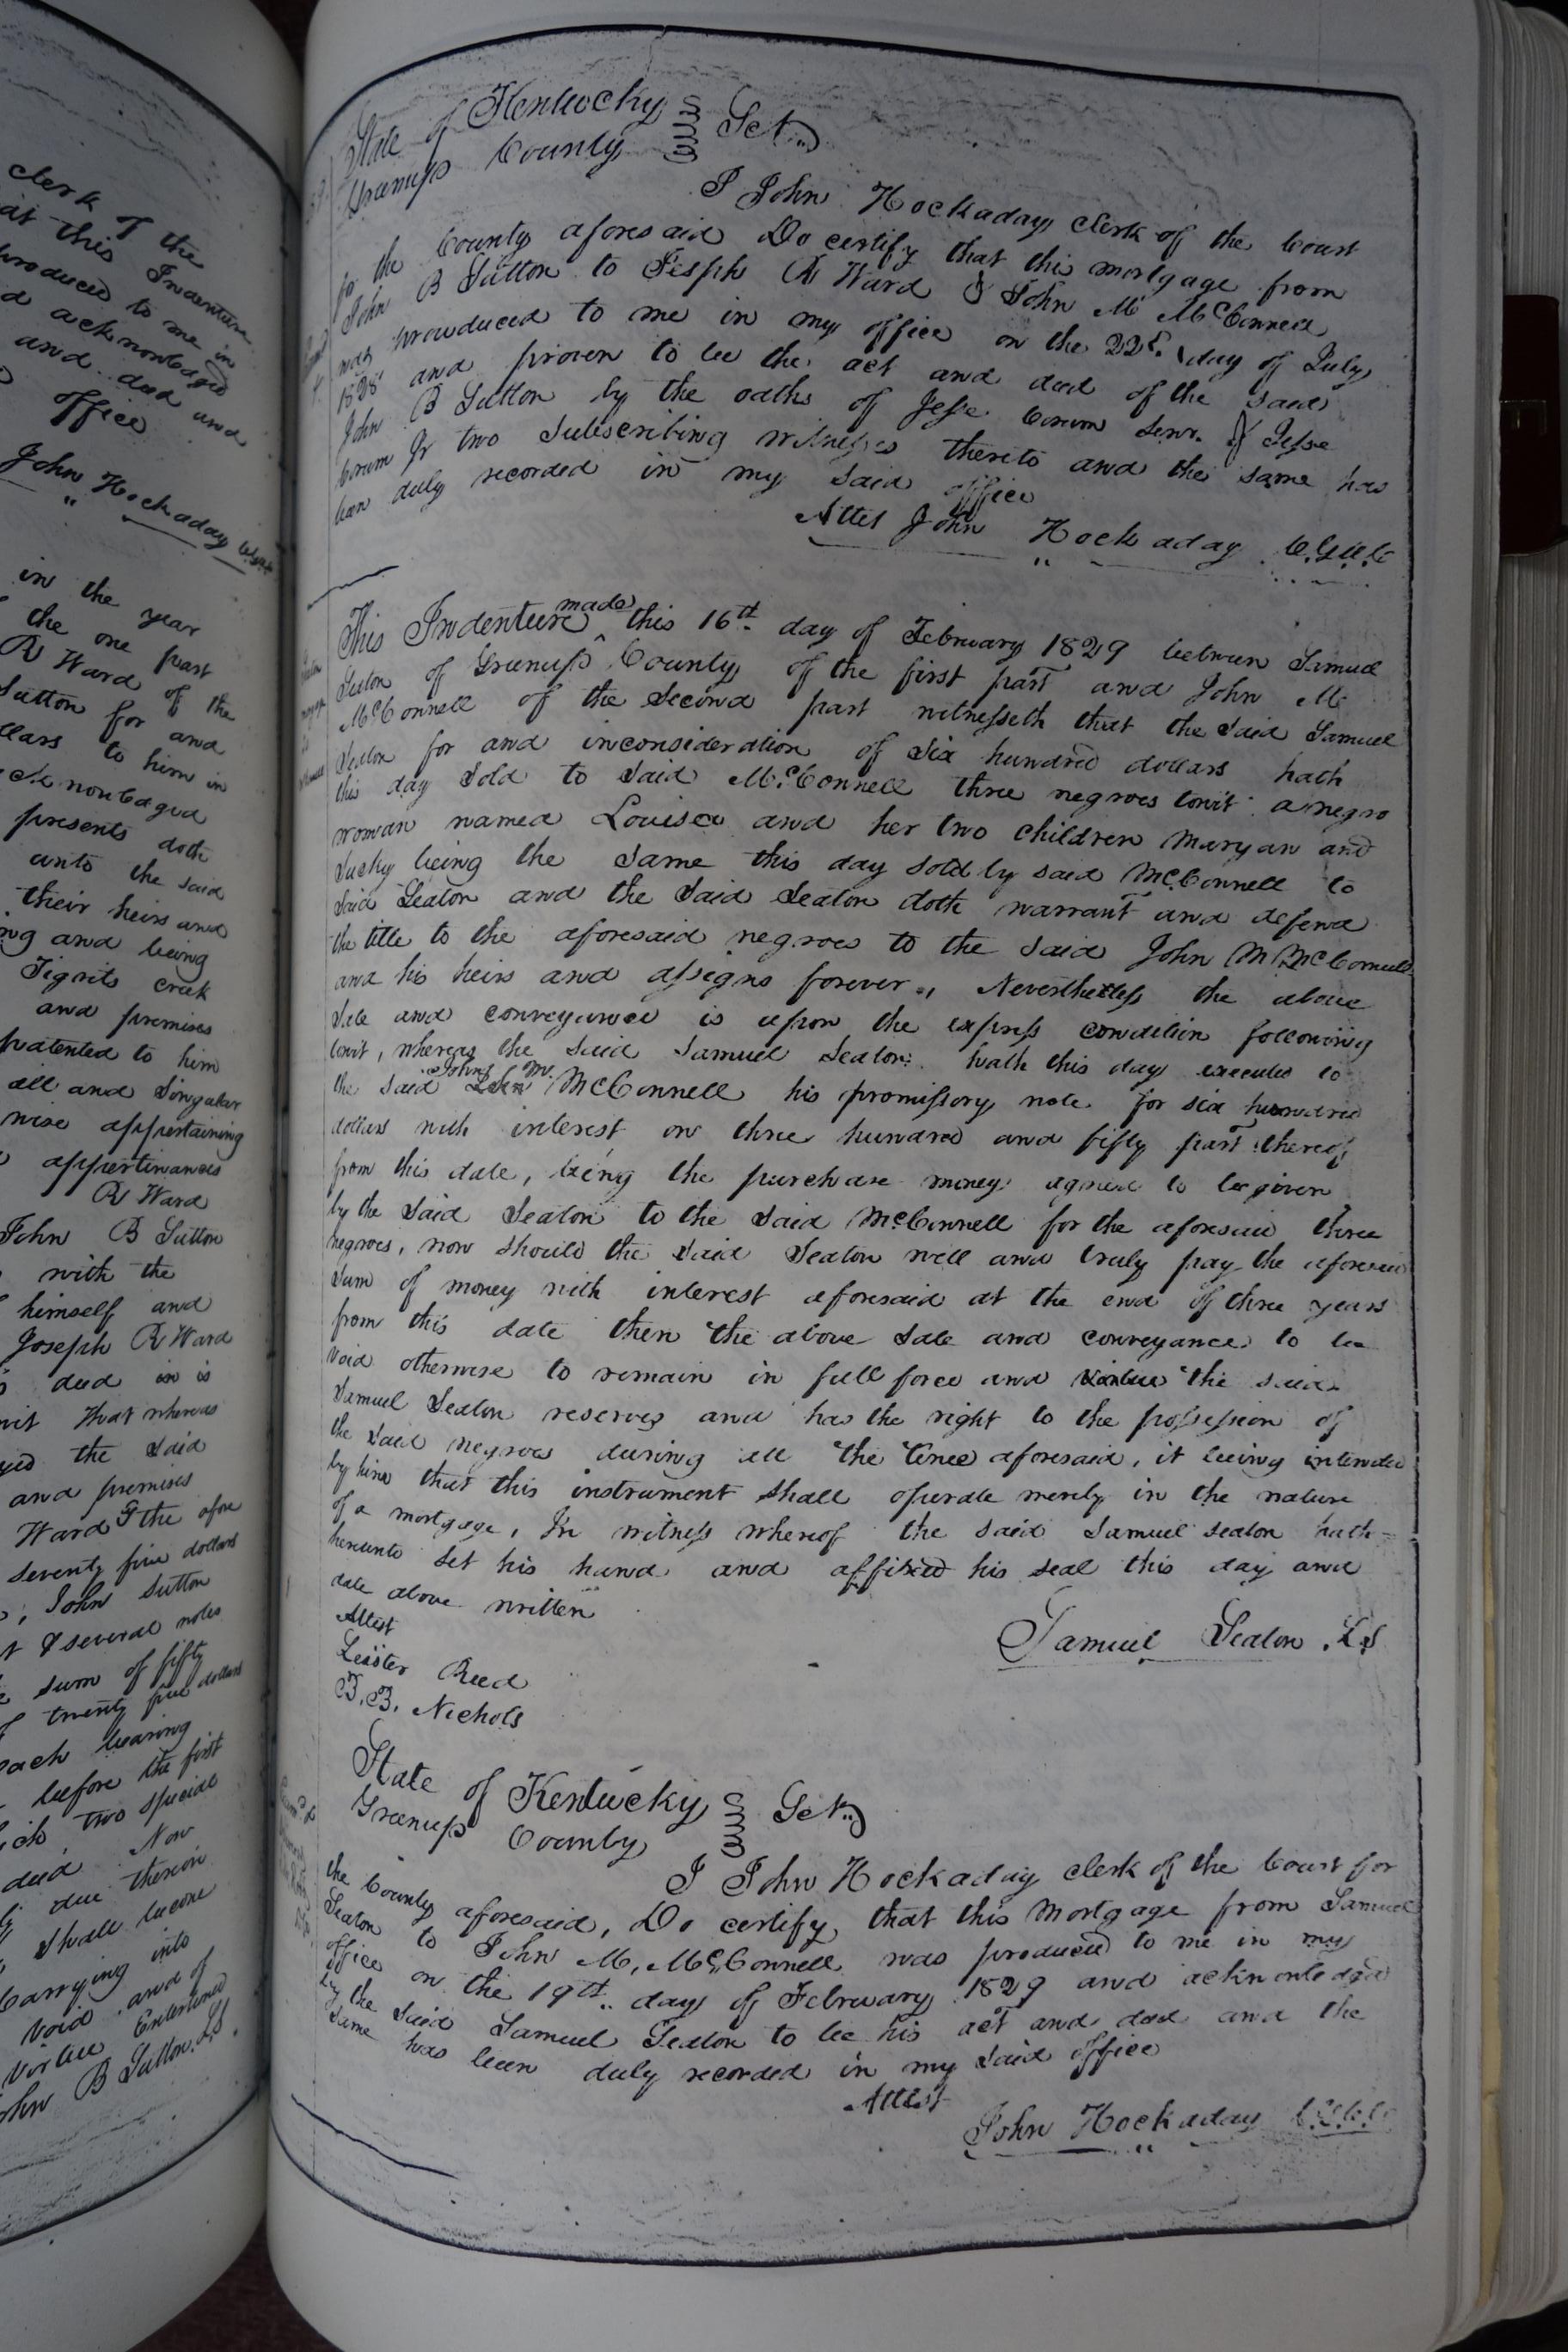 clerk of the
at this Indenture
produced to me in
d acknowledged
and deed and
office
John Hockaday
in the year
the one part
R Ward of the
Sutton for and
llars to him in
acknowledged
presents doth
unto the said
their heirs and
ng and being
Tigrits creek
and premises
patented to him
all and Singular
wise appertaining
appertinances
R Ward
John B Sutton
with the
himself and
Joseph R Ward
deed in is
wit that whereas
the Said
and premises
Ward & the afore
seventy five dollars
John Sutton
t & several notes
sum of fifty
of twenty five dollars
each bearing
before the first
two special
deed Now
due thereon
Shall become
Carrying into
void and of
virtue Enterlined
John B Sutton LS
State of Kentucky
Greenup County Sct
I John Hockaday clerk of the Court
for the County aforesaid Do certify that this mortgage from
John B Sutton to Joseph R Ward & John M McConnell
was produced to me in my office on the 22d day of July
1828 and proven to be the act and deed of the said
John B Sutton by the oaths of Jesse Corum Senr. & Jesse
Corum Jr two Subscribing witnesses thereto and the same has
been duly recorded in my Said office
Attest John Hockaday C.G.C.C
This Indenture made this 16th day of February 1829 between Samuel
Seaton of Greenup County of the first part and John M
McConnell of the Second part witnesseth that the Said Samuel
Seaton for and inconsideration of Six hundred dollars hath
this day Sold to Said McConnell three negroes towit a negro
woman named Louisa and her two children Maryan and
Lucky being the same this day sold by said McConnell to
Said Seaton and the Said Seaton doth warrant and defend
the title to the aforesaid negroes to the Said John M McConnell
and his heirs and assigns forever., Nevertheless the above
Sale and conveyance is upon the express condition following
towit, whereas the Said Samuel Seaton hath this day executed to
the said John M. McConnell his promissory note for six hundred
dollars with interest on three hundred and fifty part thereof
from this date, being the purchase money agreed to be given
by the Said Seaton to the Said McConnell for the aforesaid three
negroes, now should the Said Seaton well and truly pay the aforesaid
Sum of money with interest aforesaid at the end of three years
from this date then the above Sale and conveyance to be
void otherwise to remain in full force and virtue the said
Samuel Seaton reserves and has the right to the possession of
the Said negroes during all the time aforesaid, it being intended
by him that this instrument Shall operate merely in the nature
of a mortgage, In witness whereof the said Samuel Seaton hath
hereunto Set his hand and affixed his Seal this day and
date above written
Samuel Seaton LS
Attest
Leister Reed
B.B. Nichols
State of Kentucky
Greenup County Sct
I John Hockaday clerk of the Court for
the County aforesaid, Do certify that this Mortgage from Samuel
Seaton to John M. McConnell was produced to me in my
office on the 19th day of February 1829 and acknowledged
by the Said Samuel Seaton to be his act and deed and the
Same has been duly recorded in my Said office
Attest
John Hockaday C.G.C.C